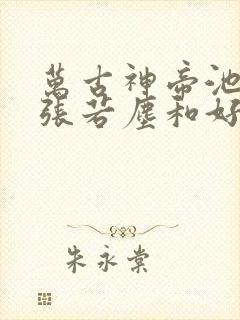 萬古神帝池
張若塵和好
朱永棠